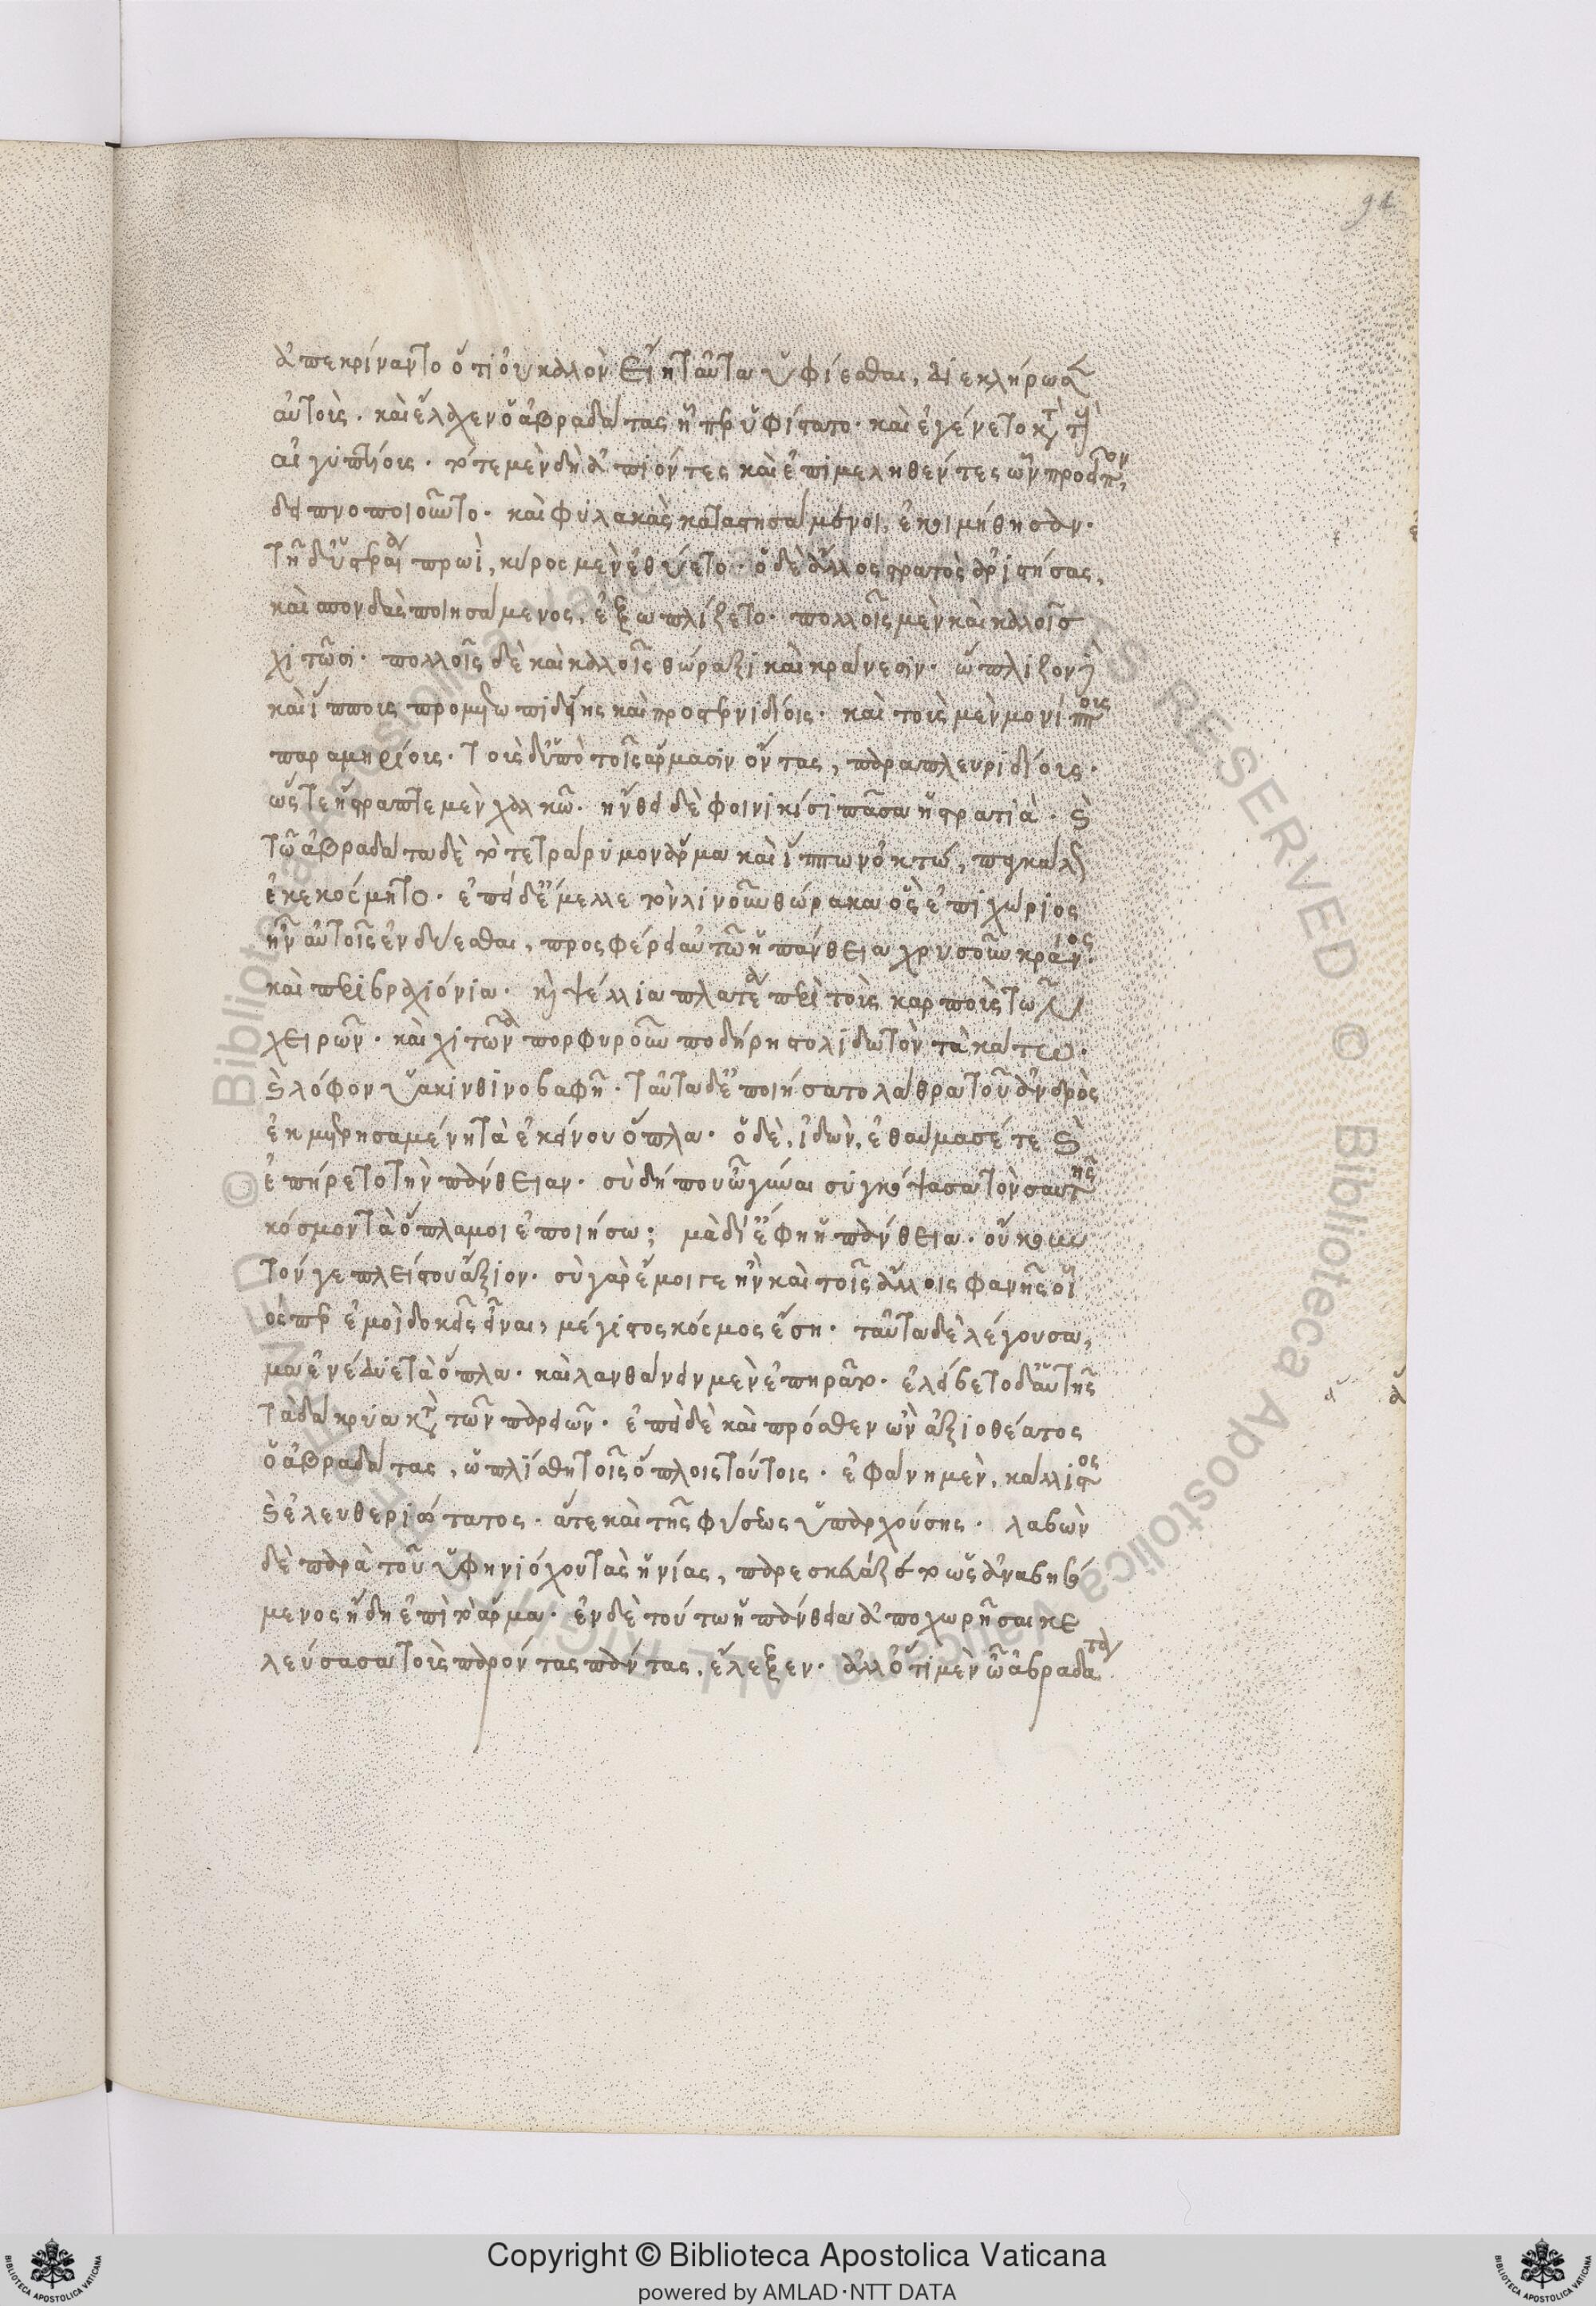 91
ἀπεκρίναντο ὅτι οὐ καλὸν εἴη ταῦτα ὑφίεσθαι, διεκλήρωσεν
αὐτοῖς. καὶ ἔλαχεν ὁ ἀβραδάτας ᾗπερ ὑφίστατο. καὶ ἐγένετο κατὰ τοὺς
αἰγυπτίους. τότε μὲν δὴ ἀπιόντες καὶ ἐπιμεληθέντες ὧν προεῖπον,
ἐδειπνοποιοῦντο. καὶ φυλακὰς καταστησάμενοι, ἐκοιμήθησαν.
τῇ δ' ὑστεραίᾳ πρωῒ, κῦρος μὲν ἐθύετο. ὁ δὲ ἄλλος στρατὸς ἀριστήσας,
καὶ σπονδὰς ποιησάμενος, ἐξωπλίζετο. πολλοῖς μὲν καὶ καλοῖς
χιτῶσι. πολλοῖς δὲ καὶ καλοῖς θώραξι καὶ κράνεσιν. ὥπλιζον δὲ
καὶ ἵππους προμετωπιδίοις καὶ προστερνιδίοις. καὶ τοὺς μὲν μονίππους
παραμηριδίοις. τοὺς δ' ὑπὸ τοῖς ἅρμασιν ὄντας, παραπλευριδίοις.
ὥστε ἤστραπτε μὲν χαλκῷ. ἤνθει δὲ φοινικίσι πᾶσα ἡ στρατιά. καὶ
τῷ ἀβραδάτᾳ δὲ τὸ τετράρυμον ἅρμα καὶ ἵππων ὀκτώ, παγκάλως
ἐκεκόσμητο. ἐπεὶ δ' ἔμελλε τὸν λινοῦν θώρακα ὃς ἐπιχώριος
ἦν αὐτοῖς ἐνδύεσθαι, προσφέρει αὐτῷ ἡ πάνθεια χρυσοῦν κράνος.
καὶ περιβραχιόνια. καὶ ψέλλια πλατέα περὶ τοὺς καρποὺς τῶν
χειρῶν. καὶ χιτῶνα πορφυροῦν ποδήρη στολιδωτὸν τὰ κάτω.
καὶ λόφον ὑακινθινοβαφῆ. ταῦτα δ' ἐποιήσατο λάθρα τοῦ ἀνδρὸς
ἐκμετρησαμένη τὰ ἐκείνου ὅπλα. ὁ δὲ, ἰδὼν, ἐθαύμασέ τε καὶ
ἐπήρετο τὴν πάνθειαν. σὺ δήπου ὦ γύναι συγκόψασα τὸν σαυτῆς
κόσμον τὰ ὅπλα μοι ἐποιήσω; μὰ δί' ἔφη ἡ πάνθεια. οὔκουν
τόν γε πλείστου ἄξιον. σὺ γὰρ ἔμοιγε ἢν καὶ τοῖς ἄλλοις φανῇς οἷ
όσπερ ἐμοὶ δοκεῖς εἶναι, μέγιστος κόσμος ἔσῃ. ταῦτα δὲ λέγουσα,
ἅμα ἐνέδυε τὰ ὅπλα. καὶ λανθάνειν μὲν ἐπειρᾶτο. ἐλείβετο δ' αὐτῆς
τὰ δάκρυα κατὰ τῶν παρειῶν. ἐπεὶ δὲ καὶ πρόσθεν ὢν ἀξιοθέατος
ὁ ἀβραδάτας, ὡπλίσθη τοῖς ὅπλοις τούτοις. ἐφάνη μὲν, κάλλιστος
καὶ ἐλευθεριώτατος. ἅτε καὶ τῆς φύσεως ὑπαρχούσης. λαβὼν
δὲ παρὰ τοῦ ὑφηνιόχου τὰς ἡνίας, παρεσκευάζετο ὡς ἀναβησό
μενος ἤδη ἐπὶ τὸ ἅρμα. ἐν δὲ τούτῳ ἡ πάνθεια ἀποχωρῆσαι κε
λεύσασα τοὺς παρόντας πάντας, ἔλεξεν. ἀλλ' ὅτι μὲν ὦ ἀβραδάτα
Copyright © Biblioteca Apostolica Vaticana
powered by AMLAD·NTT DATA